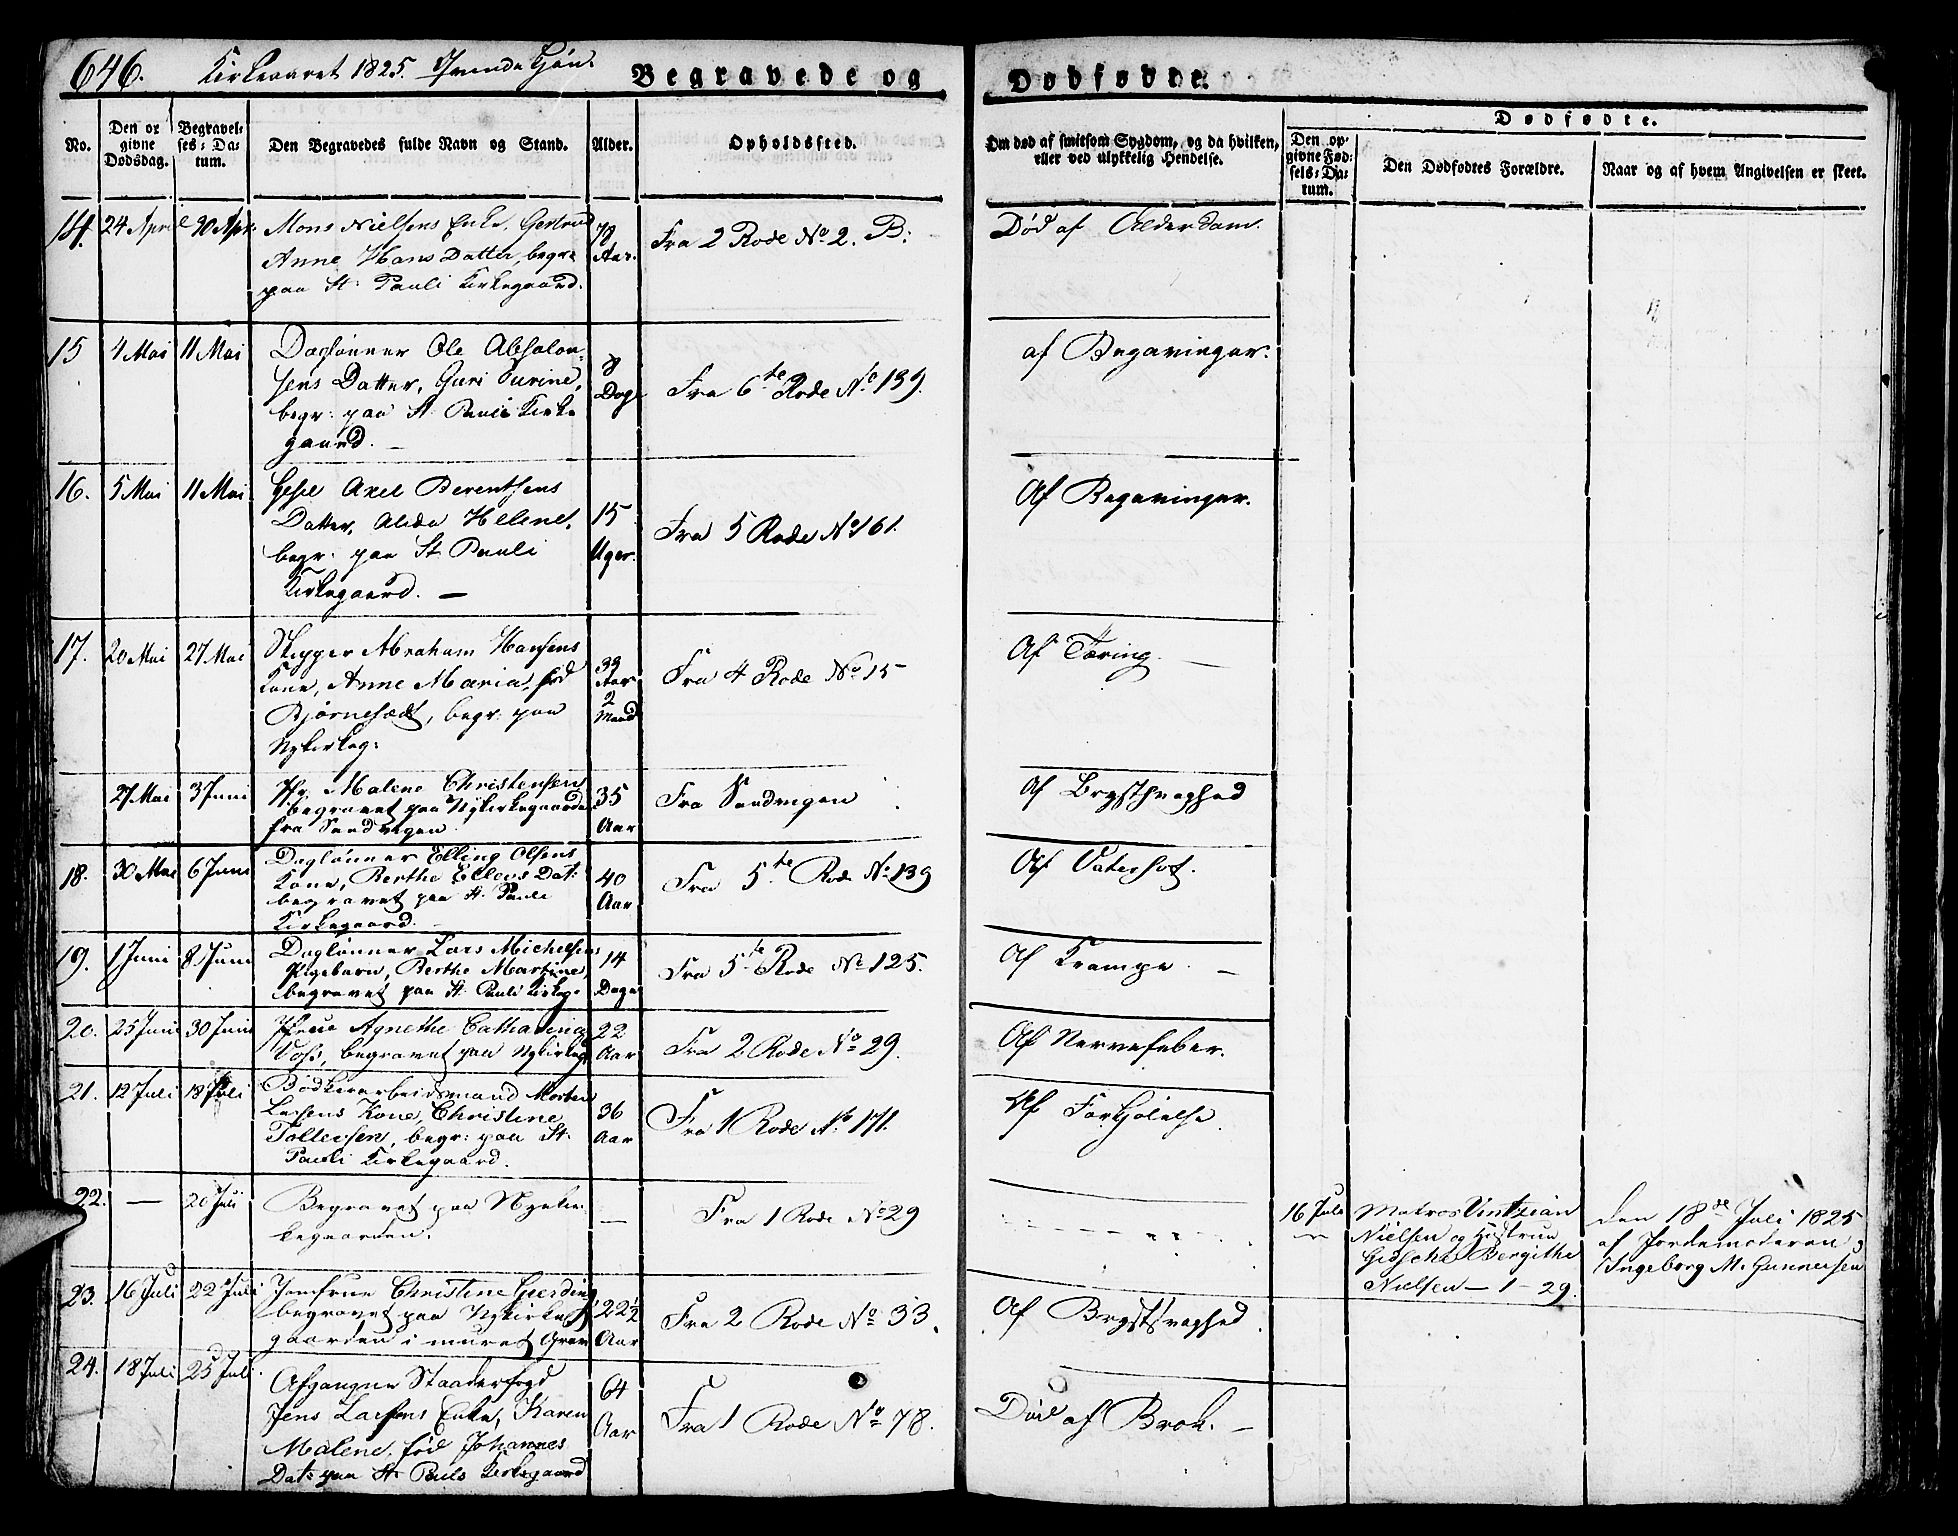 646. Kirkeaaret 1825. Qvinde Kjön.
Begravede og Dødfødte.
No.
Den opgivne Dødsdag.
Begravelses-Datum.
Den Begravedes fulde Navn og Stand.
Alder.
Opholdssted.
Om død af smitsom Sygdom, og da hvilken,
eller ved ulykkelig Hendelse.
Dødfødte.
Den opgivne Fødsels-Datum.
Den Dødfødtes Forældre.
Naar og af hvem Angivelsen er skeet.
14. 24 April 30 Apr:
Mons Nielsens Enke, Gertrud
Anne Hans Datter, begr:
paa St: Pauli Kirkegaard.
Aar.
Fra 2 Rode No 2. B:
Død af Alderdom.
15 4 Mai 11 Mai
Daglønner Ole Absalon-
sens Datter, Guri Turine,
begr: paa St Pauli Kirke
gaard. —
8
Dage
Fra 6te Rode No 139.
af Begavinger.
16. 5 Mai 11 Mai
Axel Berentsens
Datter, Alida Helene,
begr: paa St Pauli
Kirkegaard. —
15
Uger.
Fra 5 Rode No 161.
Af Begavinger.
17. 20 Mai 27 Mai
Skipper Abraham Hansens
Kone, Anne Maria, fød
Bjørnesædt, begr: paa
Nykirkeg:
39
Aar
2
Maand
Fra 4 Rode No 15
Af Tæring. —
27 Mai 3 Juni
Malene Christensen
begravet paa Nykirkegaarden
fra Sandvigen
35
Aar
Fra Sandvigen
Af Brystsvaghed
18. 30 Mai 6 Juni
Daglønner Elling Olsens
Kone, Berthe Ellens Dat:
begravet paa St. Pauli
Kirkegaard.
40
Aar
Fra 5te Rode No 139
Af Vatersot.
19. 1 Juni 8. Juni
Daglønner Lars Michelsens
Pigebarn, Berthe Martine,
begravet paa St. Pauli Kirkeg:
14
Dage
Fra 5te Rode No 125.
Af Krampe. —
20. 25 Juni 30 Juni
Agnethe Catharina
Voss, begravet paa Nykirkeg:
22
Aar
Fra 2 Rode No 29.
Af Nervefeber.
21. 12 Juli 18 Juli
Bødkerarbeidsmand Morten
Larsens Kone, Christine
Tollevsen, begr: paa St.
Pauli Kirkegaard.
36
Aar
Fra 1 Rode No 171.
Af Forkjølelse.
22. — 20 Juli
Begravet paa Nykir-
kegaarden.
—
Fra 1 Rode No 29
16 Juli
Matros Vintzian
Nielsen og Hustrue
Gidsche Bergithe
Nielsen — 1 - 29.
den 18de Juli 1825
af Jordemoderen
Ingeborg M. Gunnersen
23. 16 Juli 22 Juli
Jomfrue Christine Gjerding
begravet paa Nykirke-
gaarden i muret Grav
22½
Aar
Fra 2 Rode No 33.
Af Brystsvaghed.
24. 18 Juli 25 Juli
Afgangne Staadersfogd
Jens Larsens Enke, Karen
Malene, fød Johannes
Dat: paa St. Pauls Kirkegaard
64
Aar
Fra 1 Rode No 78.
Død af Brok. —